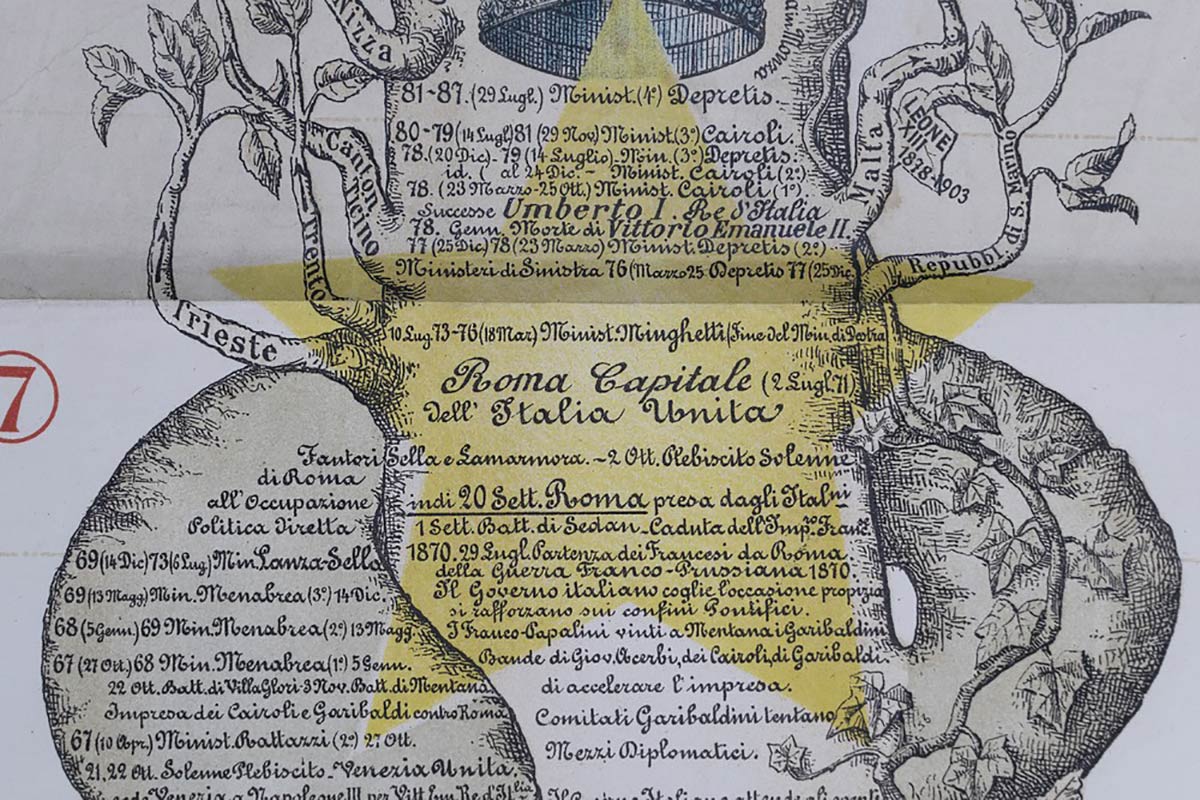 Nizza
81-87. (29 Lugl.) Minist. (4º) Depretis.
80-79 (14 Lugl) 81 (29 Nov) Minist. (3º) Cairoli.
78. (20 Dic) - 79 (14 Luglio) - Min. (3º) Depretis.
id. ( al 24 Dic. - Minist. Cairoli (2º)
78. (23 Marzo - 25 Ott.) Minist. Cairoli (1º).
Successe Umberto I. Re d'Italia
78. Genn. Morte di Vittorio Emanuele II.
77 (25 Dic) 78 (23 Marzo) Minist. Depretis (2º)
Ministeri di Sinistra 76 (Marzo 25 Depretis 77 (25 Dic.
Canton Ticino
Trento
Trieste
Malta
LEONE
XIII
1878-1903
Repubb. di S. Marino
10 Lug. 73-76 (18 Mar) Minist. Minghetti (Fine del Min. di Destra
Roma Capitale (2 Lugl. 71)
dell' Italia Unita
7
Fautori Sella e Lamarmora. - 2 Ott. Plebiscito Solenne
di Roma
all'Occupazione
Politica Diretta
indi 20 Sett. Roma presa dagli Ital.ni
1 Sett. Batt. di Sedan - Caduta dell'Imp.
1870. 29 Lugl. Partenza dei Francesi da Roma.
della Guerra Franco-Prussiana 1870.
Il Governo italiano coglie l'occasione propizia
si rafforzano sui confini Pontifici.
I Franco-Papalini vinti a Mentana i Garibaldini
Bande di Giov. Acerbi, dei Cairoli, di Garibaldi.
di accelerare l'impresa.
Comitati Garibaldini tentano
Mezzi Diplomatici.
69 (14 Dic) 73 (6 Lug) Min. Lanza-Sella
69 (13 Magg) Min. Menabrea (3º) 14 Dic.
68 (5 Genn.) 69 Min. Menabrea (2º) 13 Magg.
67 (27 Ott.) 68 Min. Menabrea (1º) 5 Genn.
22 Ott. Batt. di Villa Glori - 3 Nov. Batt. di Mentana
Impresa dei Cairoli e Garibaldi contro Roma
67 (10 Apr.) Minist. Rattazzi (2º) 27 Ott.
21, 22 Ott. Solenne Plebiscito - Venezia Unita.
cede Venezia a Napoleone III per Vitt. Em. Re d'Italia
Il Governo Italiano attende gli eventi